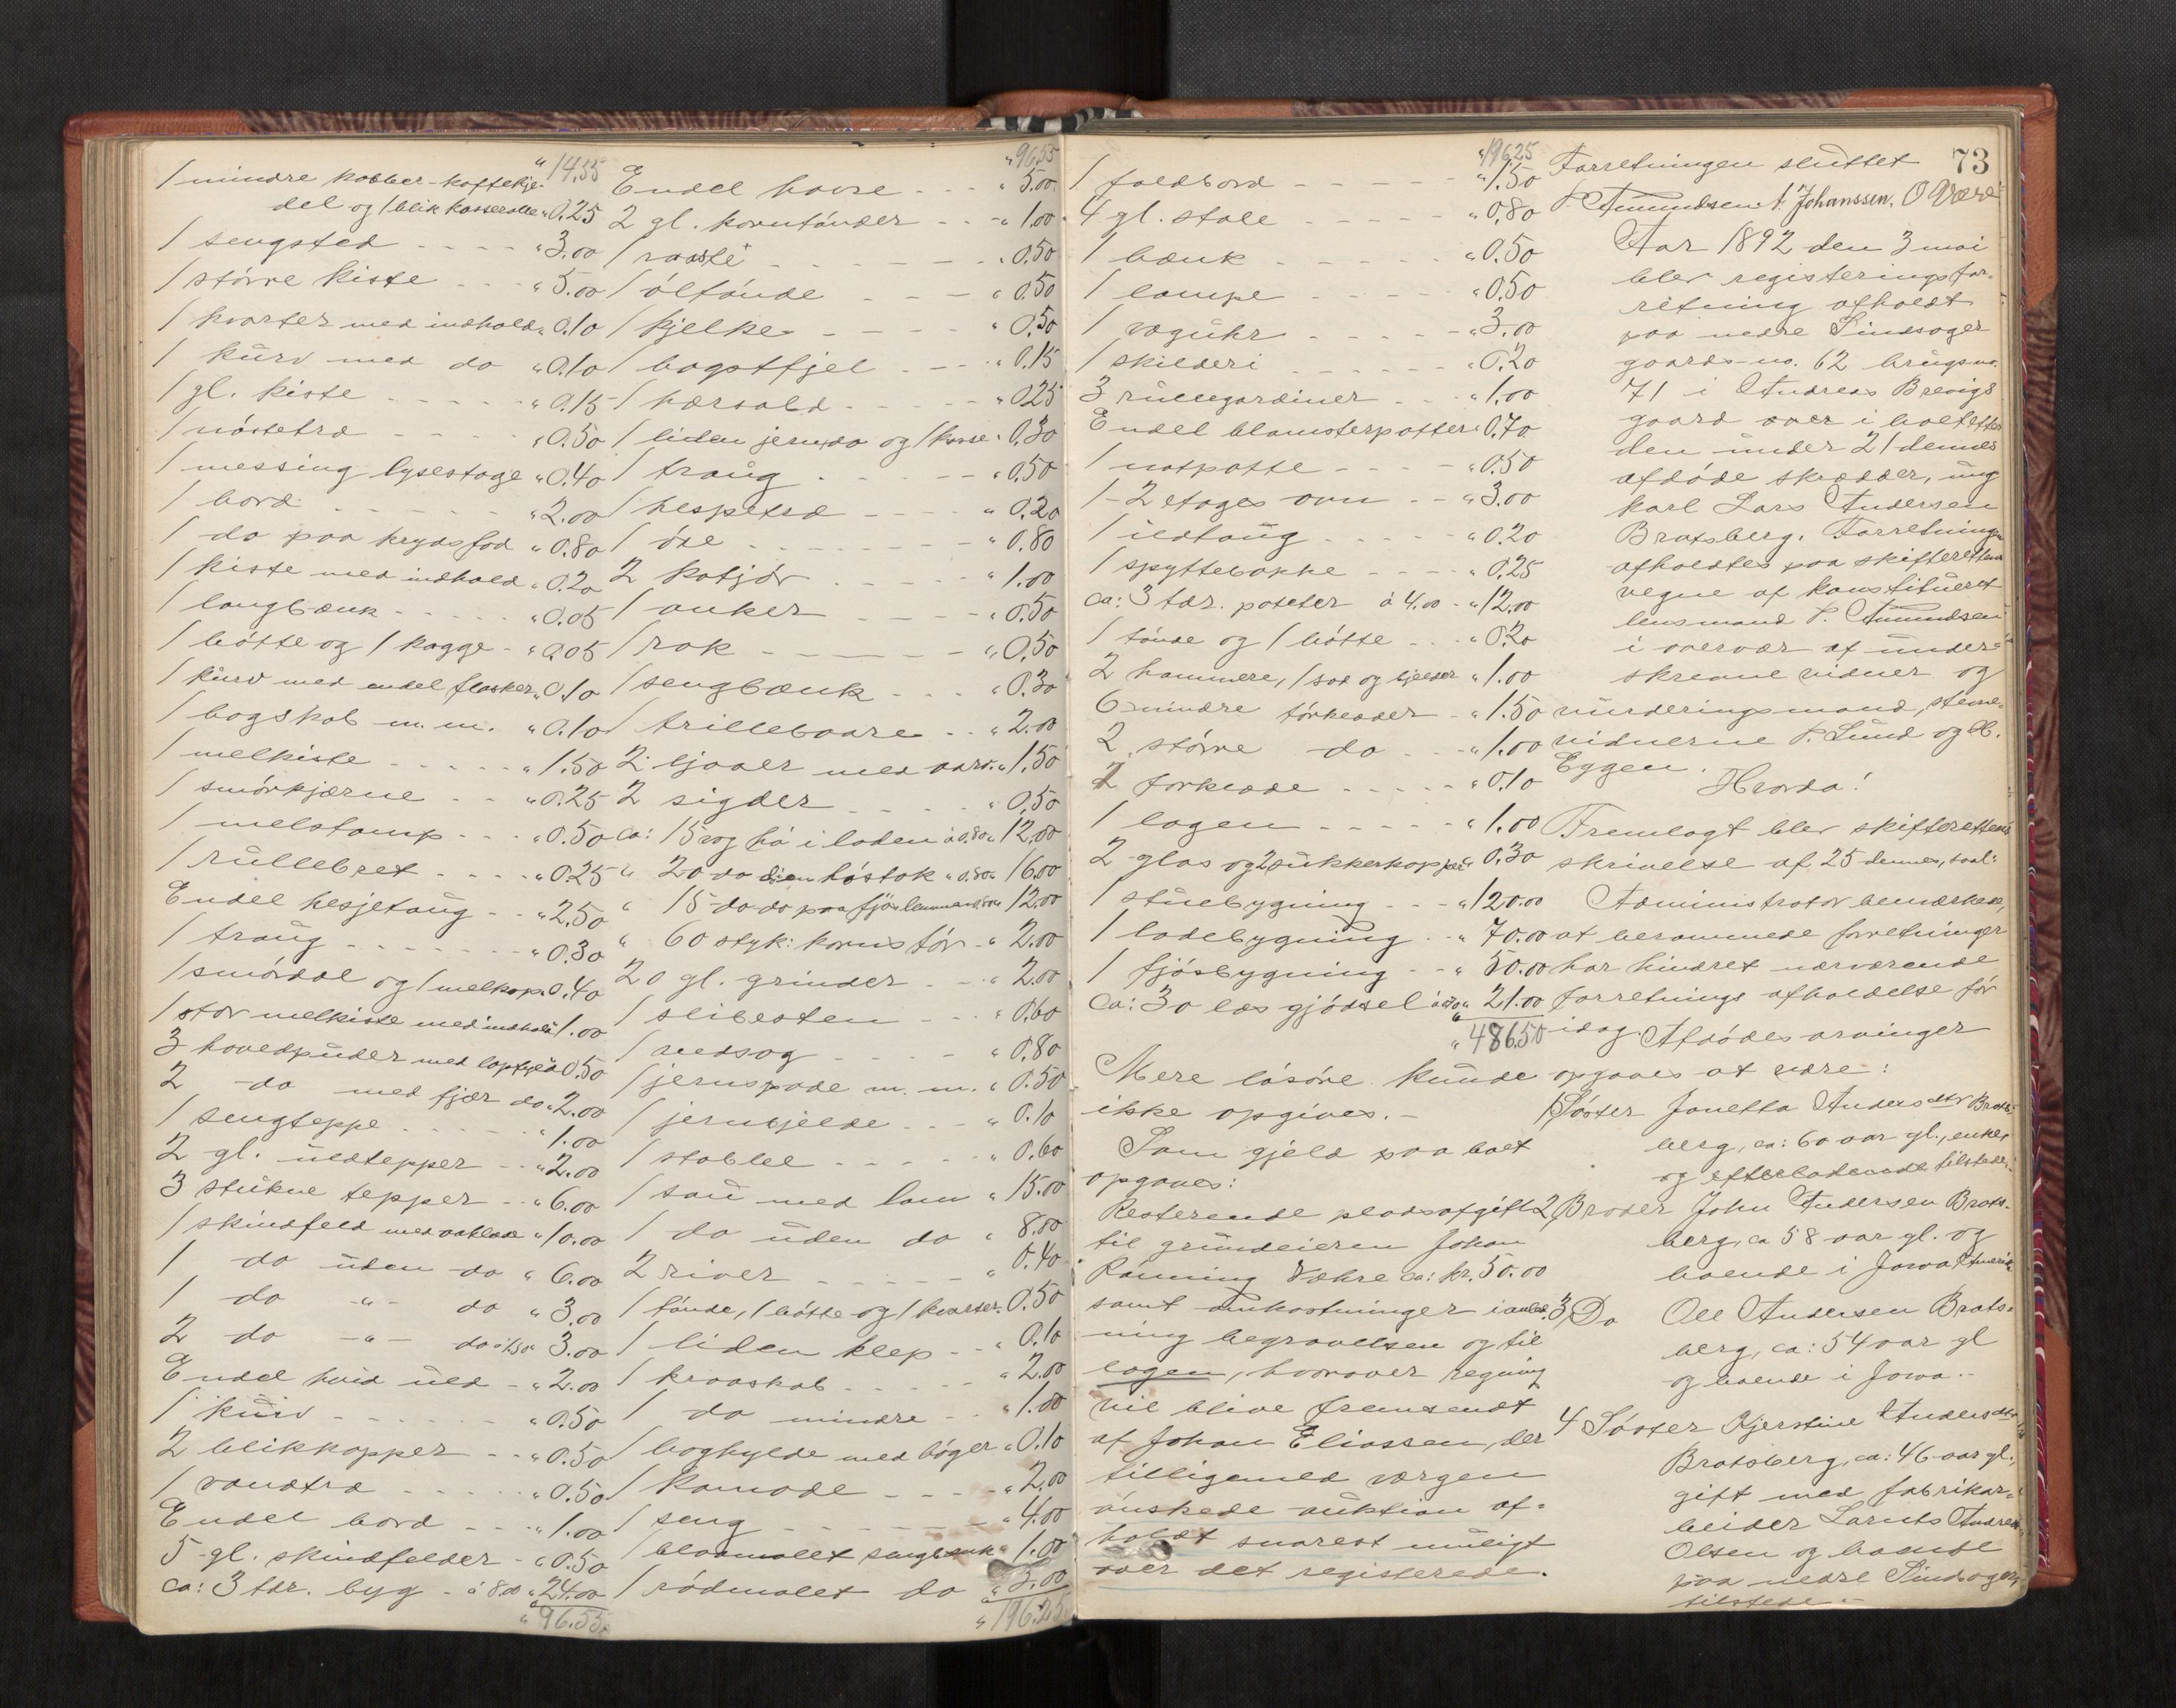 " 14.55
1 mindre kobber-kaffekje-
del og 1 blik kasserolle " 0.25
1 sengsted - - - - " 3.00
1 större kiste - - - " 5.00
1 kvarter med indhold " 0.10
1 kurv med do " 0.10
1 gl. kiste - - - - - " 0.15
1 nöstetræ - - - - " 0.50
1 messing lysestage " 0.40
1 bord - - - - - - " 2.00
1 do paa krydsfod " 0.80
1 kiste med indhold " 0.20
1 langbænk - - - - - " 0.05
1 bötte og 1 kagge - " 0.05
1 kurv med endel flasker " 0.10
1 bogskab m. m. " 0.10
1 melkiste - - - - - " 1.50
1 smörkjærne - - " 0.25
1 melstamp - - - " 0.50
1 rullebret - - - - " 0.25
Endel hesjetaug - - " 2.50
1 traug - - - - - - " 0.30
1 smördal og 1 melkop " 0.40
1 stor melkiste med indhold " 1.00
3 hovedpuder med 0.50
2 do med fjær do " 2.00
1 sengteppe - - - - - " 1.00
2 gl. uldtepper - - " 2.00
3 stukne tepper - - " 6.00
1 skindfeld med aaklæde " 10.00
1 do uden do " 6.00
1 do - " - do " 3.00
2 do - " - do à 1.50 3.00
Endel hvid uld - " 2.00
1 kurv - - - - - - " 0.50
2 blikkopper - - " 0.50
1 vandtræ - - - - - " 0.50
Endel bord - - - " 1.00
5 gl. skindfelder - " 0.50
ca: 3 tdr. byg - à 8.00 " 24.00
" 96.55
" 96.55
Endel havre - - - " 5.00
2 gl. korntönder - - " 1.00
1 - - - - - - " 0.50
1 öltönde - - - " 0.50
1 kjelke - - - - - " 0.50
1 bagstfjel - - - " 0.15
1 hærsold - - - - - " 0.25
1 liden jern og 1 " 0.30
1 traug - - - - - " 0.50
1 hespetræ - - - - " 0.20
1 öxe - - - - - - " 0.80
2 - - - - - " 1.00
1 anker - - - - " 0.50
1 rok - - - - - " 0.50
1 sengbænk - - - " 0.30
1 trilleboare - - " 2.00
2 ljaaer med " 1.50
2 sigder - - - - " 0.50
ca: 15 vog hö i laden à 0.80 " 12.00
" 20 do i en höstak " 0.80 " 16.00
" 15 do do paa fjös " 12.00
" 60 styk: - " 2.00
20 gl. grinder - - " 2.00
1 slibesten - - - " 0.60
1 vedsag - - - - " 0.80
1 jernspade m. m. " 0.50
1 jernbjelde - - - " 0.10
1 - - - - - " 0.60
1 sau med lam " 15.00
1 do uden do " 8.00
2 river - - - - - " 0.40
1 tönde, 1 bötte og 1 kvarter " 0.50
1 liden klep - - " 0.10
1 kraaskab - - - - - " 2.00
1 do mindre - - " 1.00
1 boghylde med böger " 0.10
1 komode - - - - " 2.00
1 seng - - - - - - " 4.00
1 blaamalet sengbænk " 1.00
1 rödmalet do " 3.00
" 196.25
" 196.25
1 foldbord - - - - - " 1.50
4 gl. stole - - - - - " 0.80
1 bænk - - - - - " 0.50
1 lampe - - - - - " 0.50
1 væguhr - - - - " 3.00
1 skilderi - - - - - - " 0.20
3 rullegardiner - - - " 1.00
Endel blomsterpotter " 0.70
1 natpotte - - - - " 0.50
1 - 2 etages ovn - - " 3.00
1 ildtaug - - - - - " 0.20
1 spyttebakke - - - - " 0.25
ca: 3 tdr. poteter à 4.00 - " 12.00
1 tönde og 1 bötte - - " 0.20
2 hammere, 1 sod og bjelder " 1.00
6 mindre törklæder - " 1.50
2 större do - - " 1.00
1 forklæde - - - - - " 0.10
1 lagen - - - - - " 1.00
2 glas og 2 sukkerkopper " 0.30
1 stuebygning - - - " 120.00
1 ladebygning - - " 70.00
1 fjösbygning - - " 50.00
ca: 30 læs gjödsel à 0.70 " 21.00
" 486.50
Mere lösöre kunde
ikke opgives. -
Som gjeld paa boet
opgaves:
Resterende pladsafgift
til grundeieren Johan
Rönning Væhre ca: kr. 50.00
samt omkostninger i anled-
ning begravelsen og til
lægen, hvorover regning
vil blive fremsendt
af Johan Eliassen, der
tilligemed værgen
önskede auktion af-
holdt snarest muligt
over det registerede.
73
Forretningen sluttet
P. Amundsen. Johanssen. O Være
Aar 1892 den 3 mai
blev registeringsfor-
retning afholdt
paa nedre Sindsager
gaards-no. 62 brugs-no.
71 i Andreas Brevigs
gaard over i boet efter
den under 21 dennes
afdöde skrædder, ung
karl Lars Andersen
Bratsberg. Forretningen
afholdtes paa skifterettens
vegne af konstitueret
lensmand P. Amundsen
i overvær af under-
skrevne vidner og
vurderingsmænd, stevne-
vidnerne P. Lund og
Eggen.
Hvorda!
Fremlagt blev skifterettens
skrivelse af 25 dennes, saal:
Administrator bemærkede,
at berammede forretninger
har hindret nærværende
forretnings afholdelse för
idag. Afdödes arvinger
opgaves at være:
1, Söster Janetta Andersdtr Brats-
berg, ca: 60 aar gl., enke,
og efterladende tilstede.
2, Broder John Andersen Brats-
berg, ca 58 aar gl. og
boende i Jowa Amerik
3, Do Ole Andersen Brats-
berg, ca: 54 aar gl
og boende i Jowa. -
4 Söster Kjerstine Andersdtr
Bratsberg, ca: 46 aar gl.,
gift med fabrikar-
beider Andreas
Olsen og boende
paa nedre Sindsager,
tilstede. -